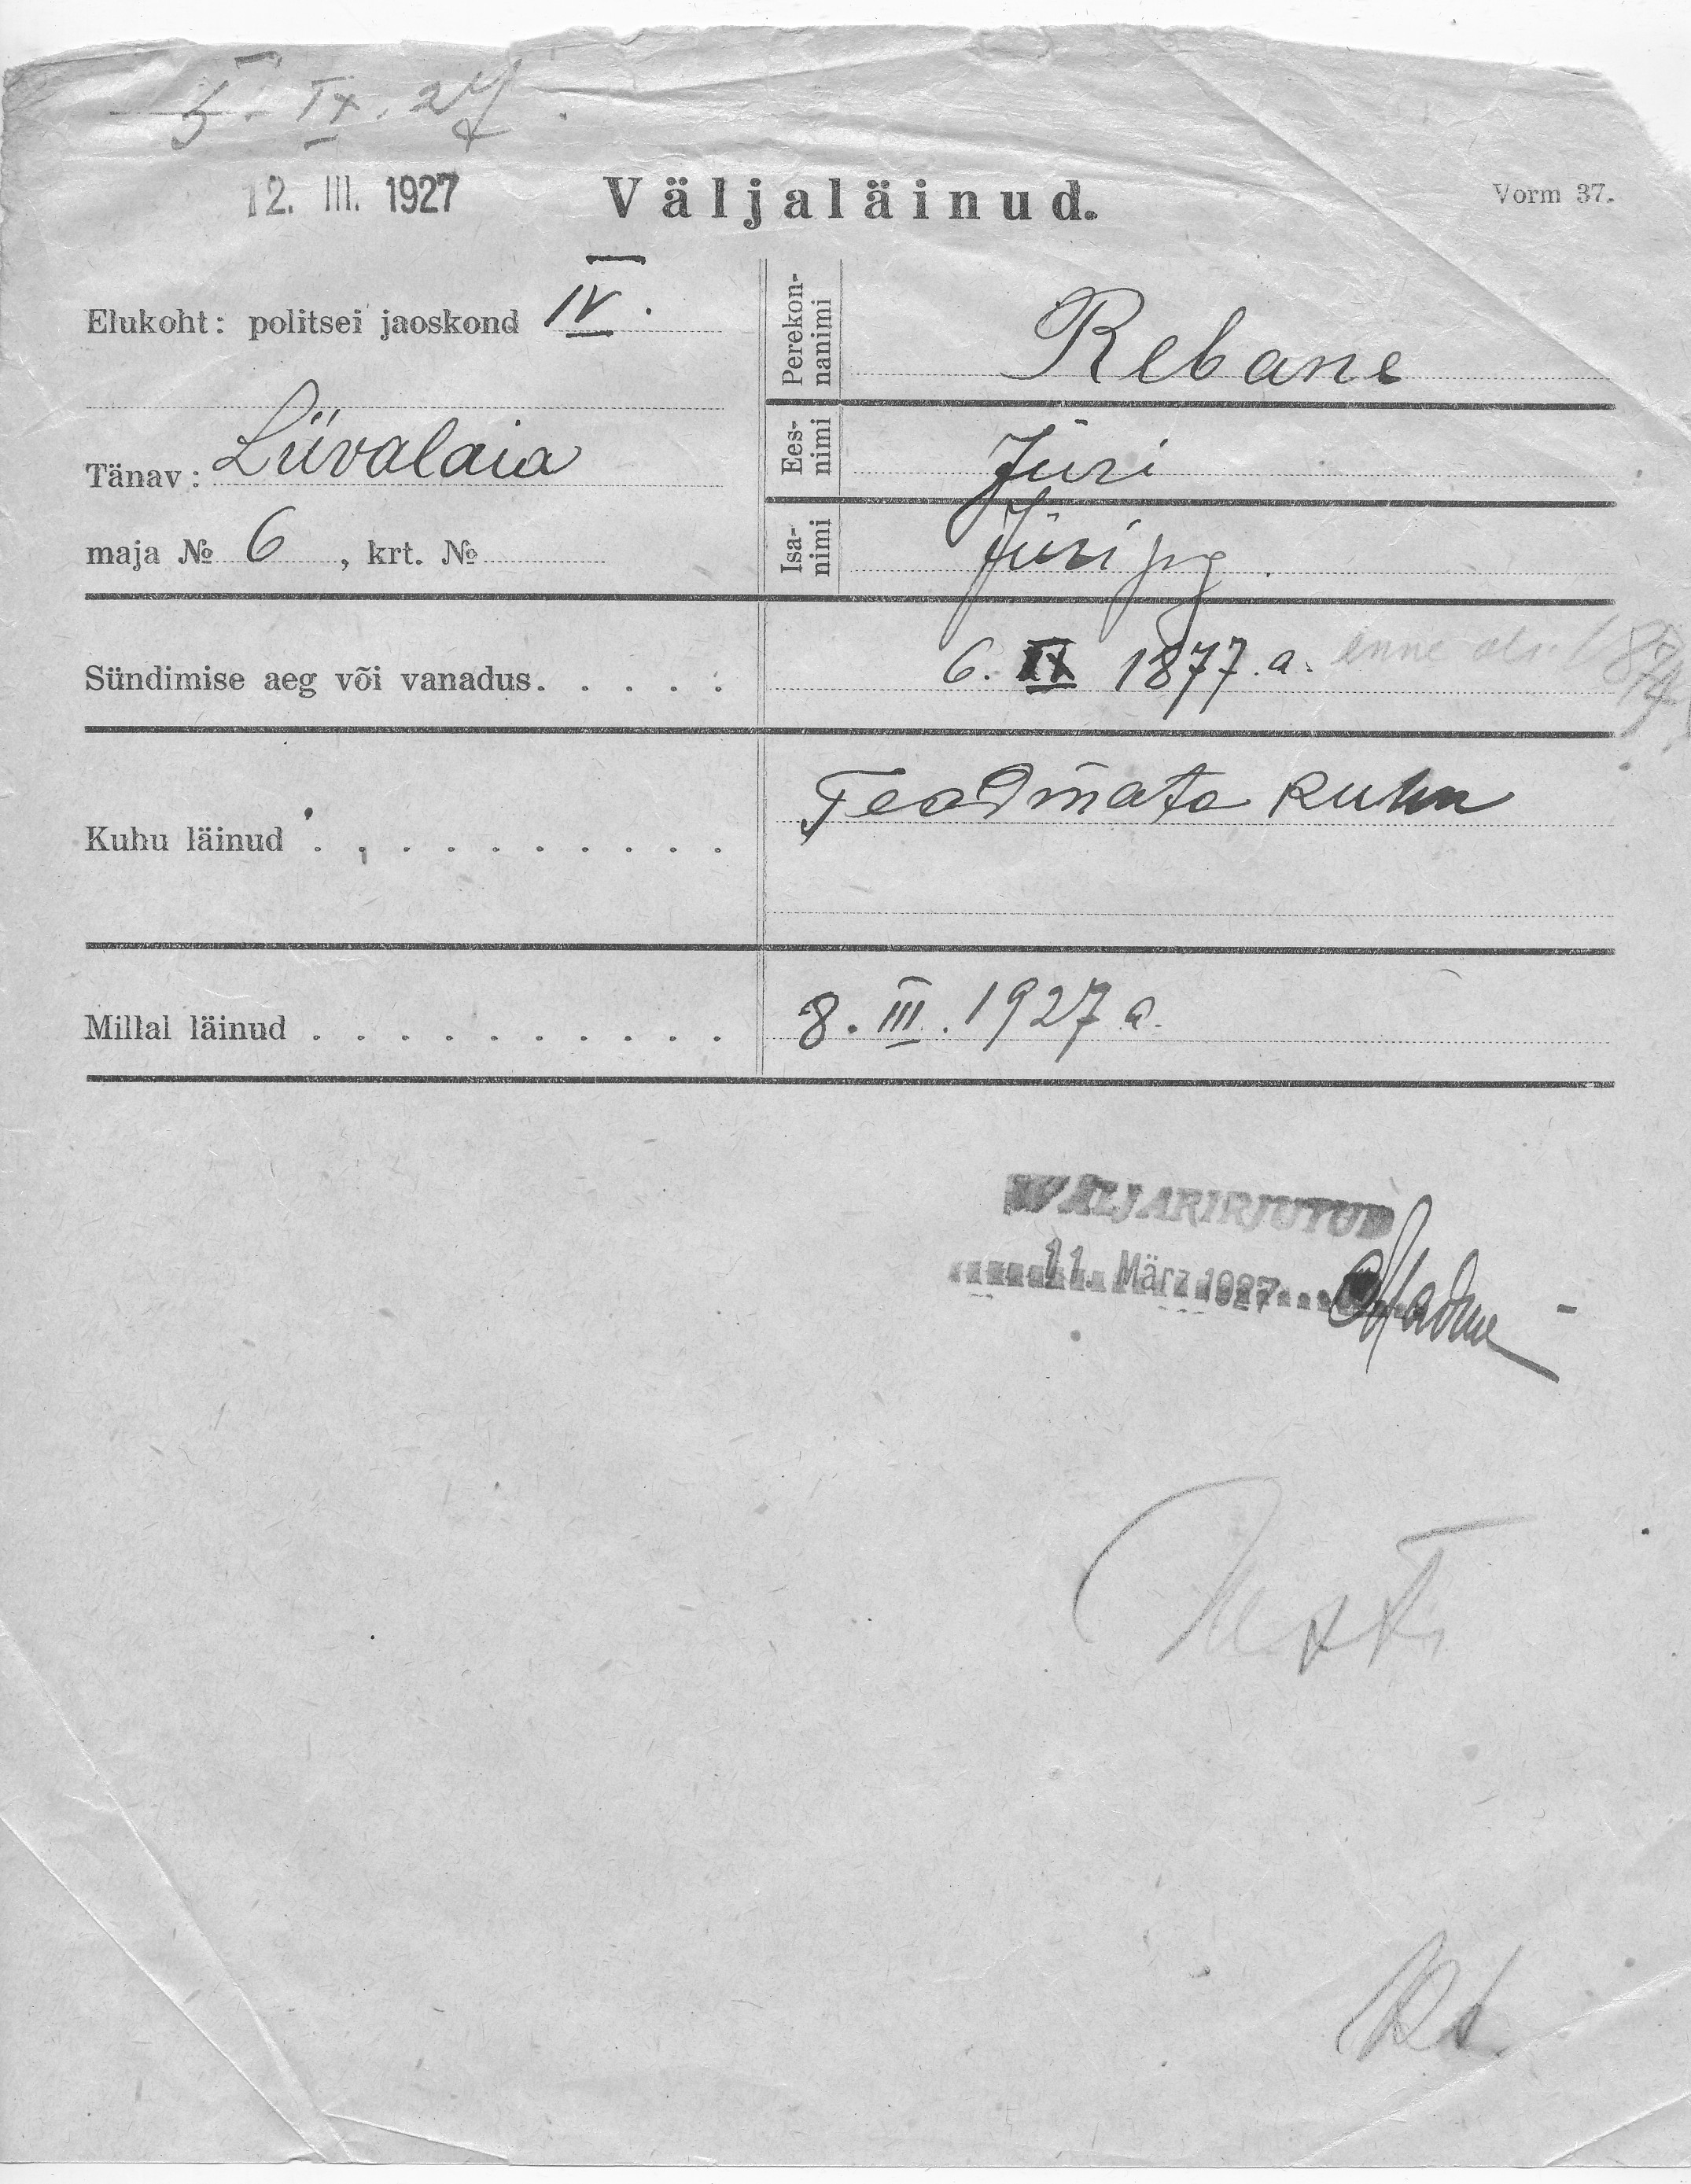 5. IX. 27.
12. III. 1927
Väljaläinud.
Vorm 37.
Elukoht: politsei jaoskond IV.
Tänav: Liivalaia
maja № 6, krt. №
Perekonnanimi
Rebane
Eesnimi
Jüri
Isanimi
Jüri pg.
Sündimise aeg või vanadus. . . . . . 6. IX 1877. a. enne ol. 1874
Kuhu läinud . . . . . . . . . . Teadmata kuhu
Millal läinud . . . . . . . . . . 8. III. 1927 a.
WÄLJAKIRJUTUD
11. März 1927